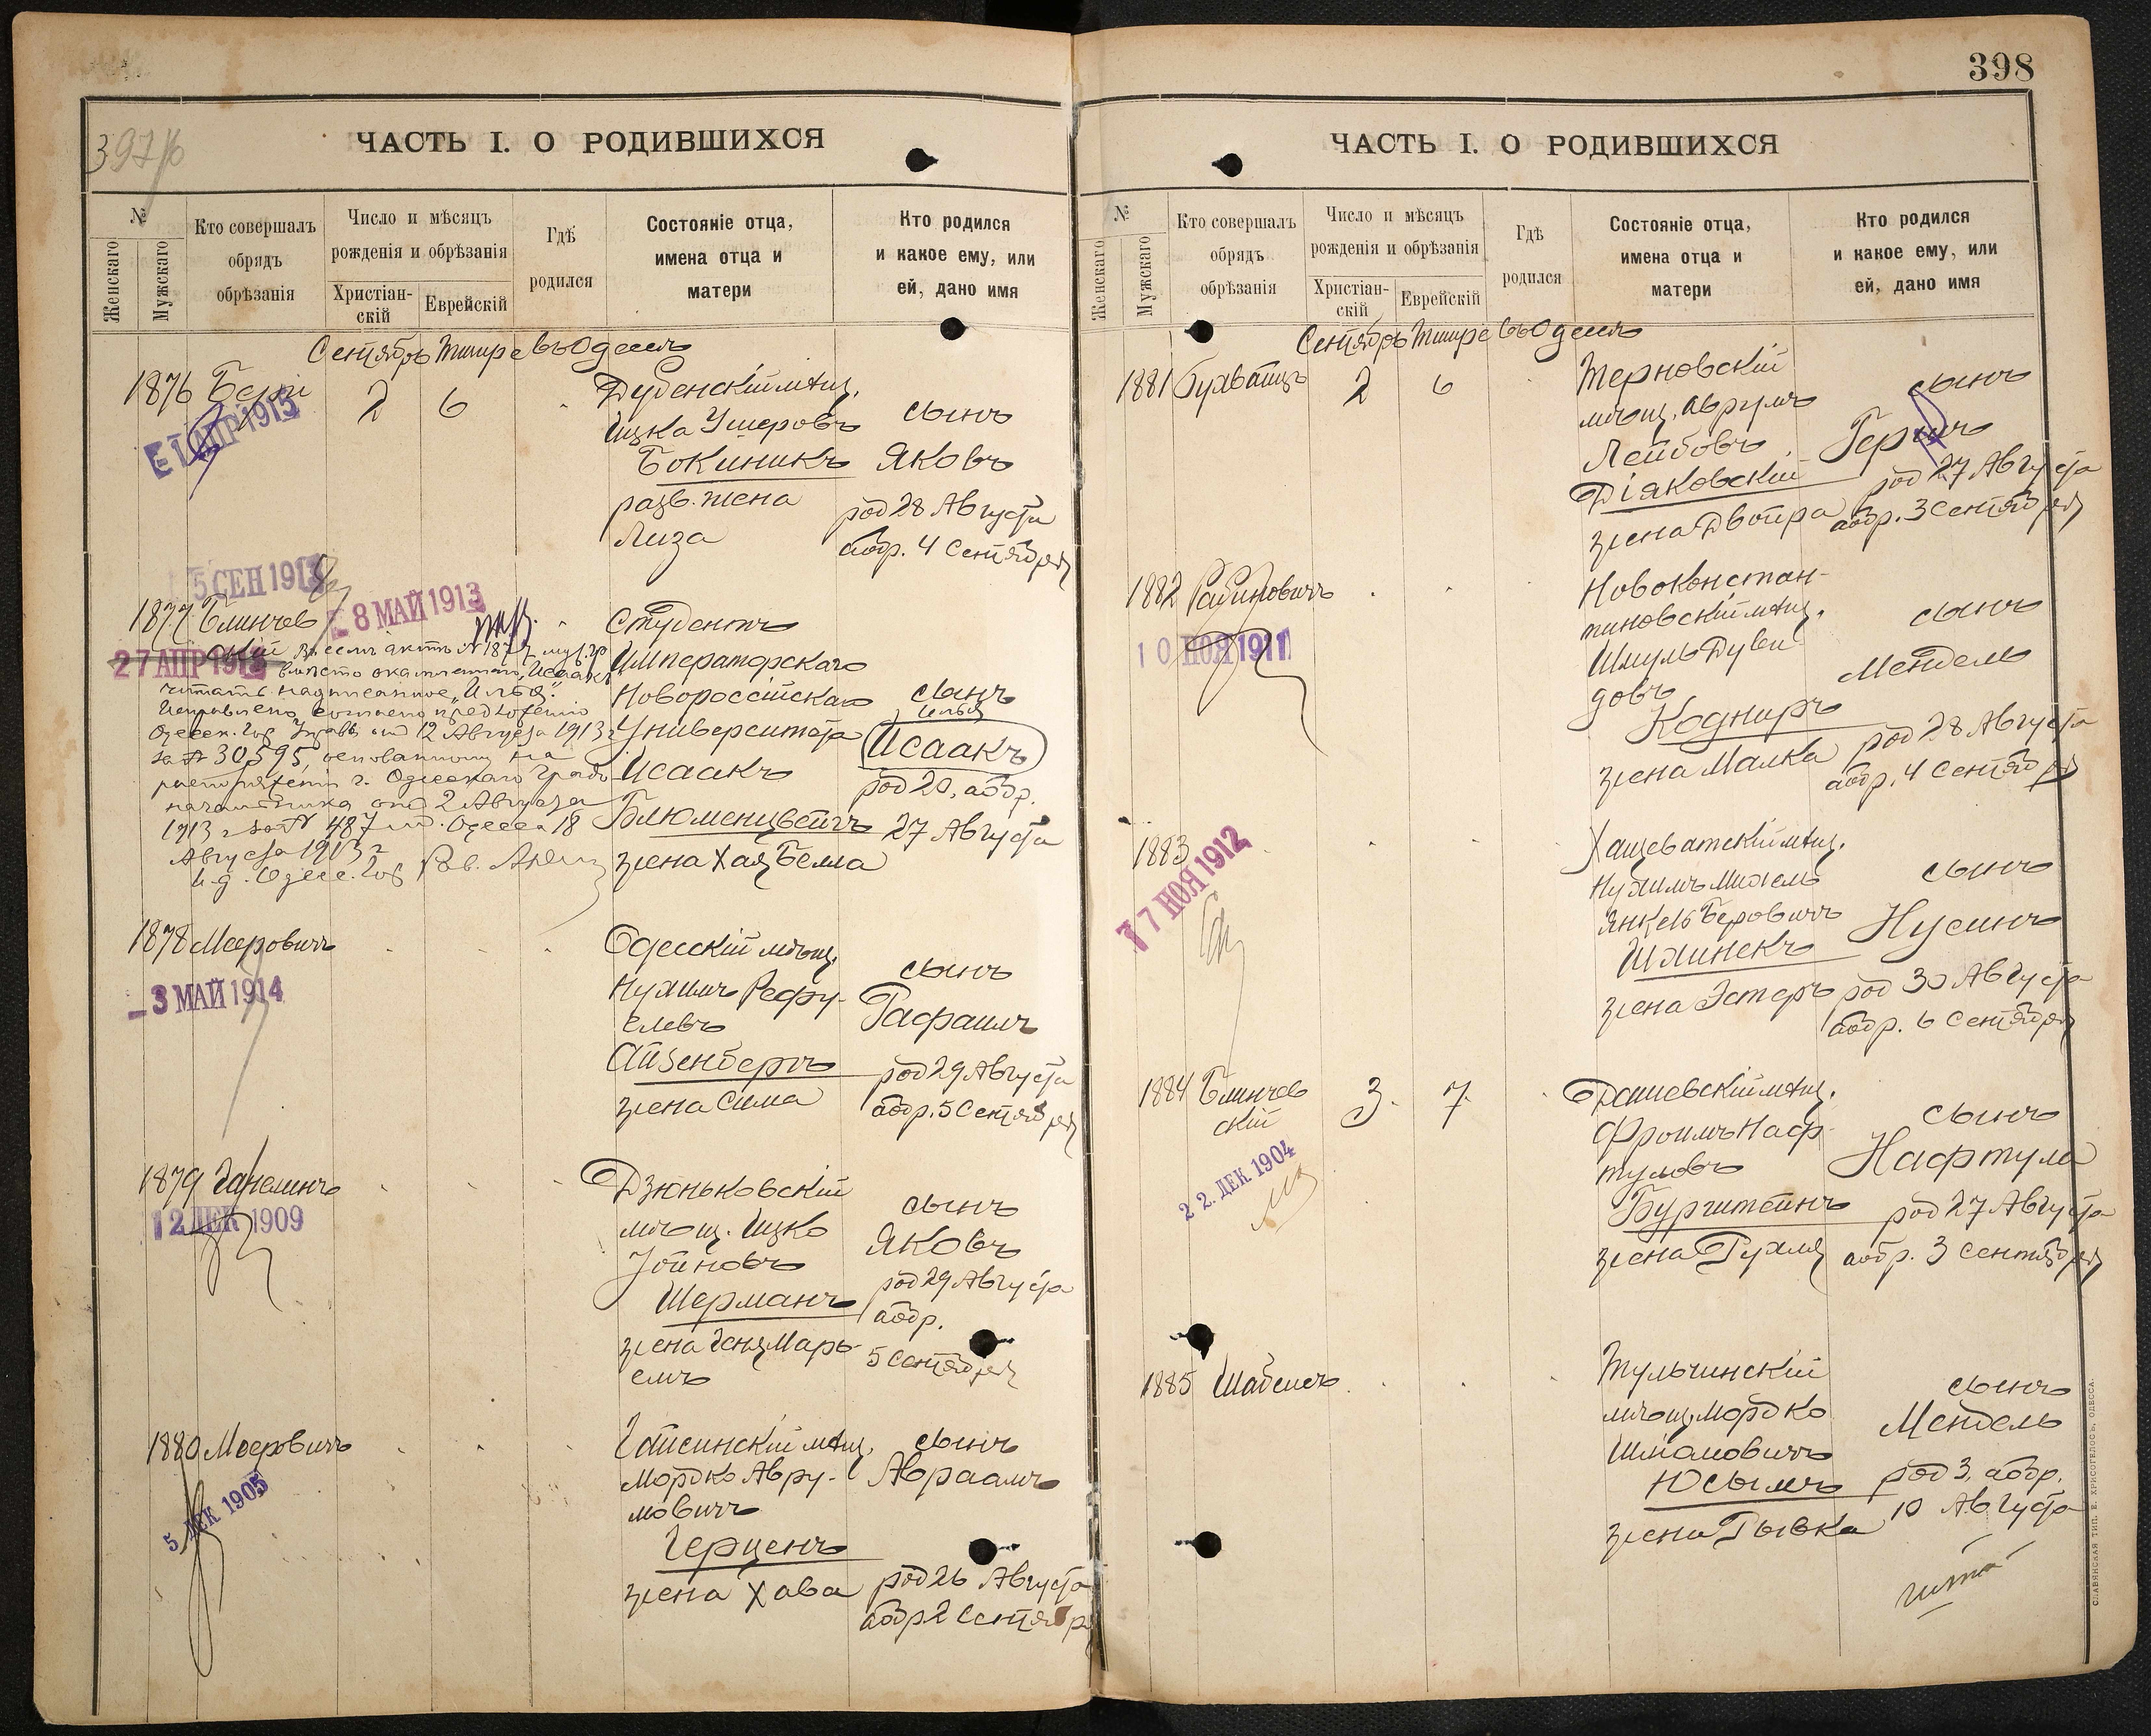 397/б
ЧАСТЬ I. О РОДИВШИХСЯ
№
Женскаго
Мужскаго
Кто совершалъ
обрядъ
обрѣзанія
Число и мѣсяцъ
рожденія и обрѣзанія
Христіан-
скій
Еврейскій
Гдѣ
родился
Состояніе отца,
имена отца и
матери
Кто родился
и какое ему, или
ей, дано имя
Сентябрь Тишре въ Одессѣ
1876
2 6
Дубенскій мѣщ.
Ицка Ушеровъ
Бокиникъ
разв. жена
Лиза
сынъ
Яковъ
род 28 Августа
аобр. 4 Сентября
АПР 1915
5 СЕН 191
8 МАЙ 1913
27 АПР 191
1877 Блинчев
скій
Въ семъ актѣ № 1877 муж. гр
вмѣсто „Исаакъ“
читать надписанное „Илья“.
Исправлено согласно предложенію
Одесск. Гор. Управы от 12 Августа 1913 г
за № 30595, основанному на
распоряженіи г. Одесскаго Градо-
начальника от 2 Августа
1913 г за № 487 Одесса 18
Августа 1913 г
И.д. Одесс. Гор Рав.
Студентъ
Императорскаго
Новороссійскаго
Университета
Исаакъ
Блюменцвейгъ
жена Хая Белла
сынъ
Илья
Исаакъ
род 20, аобр.
27 Августа
1878 Меровичъ
3 МАЙ 1914
Одесскій мѣщ.
Нухимъ Рефу-
елевъ
Айзенбергъ
жена Сима
сынъ
Рафаилъ
род 29 Августа
аобр. 5 Сентября
1879 Ганелинъ
12 ДЕК 1909
Дзюньковскій
мѣщ. Ицко
Іойновъ
Шерманъ
жена Геня Марь-
емъ
сынъ
Яковъ
род 29 Августа
аобр.
5 Сентября
1880 Меровичъ
5 ДЕК 1905
Гайсинскій мѣщ.
Мордко Авру-
мовичъ
Герценъ
жена Хава
сынъ
Авраамъ
род 26 Августа
аобр 2 Сентября
398
ЧАСТЬ I. О РОДИВШИХСЯ
№
Женскаго
Мужскаго
Кто совершалъ
обрядъ
обрѣзанія
Число и мѣсяцъ
рожденія и обрѣзанія
Христіан-
скій
Еврейскій
Гдѣ
родился
Состояніе отца,
имена отца и
матери
Кто родился
и какое ему, или
ей, дано имя
Сентябрь Тишре въ Одессѣ
1881 Бухвайцъ 2 6
Терновскій
мѣщ. Аврумъ
Лейбовъ
Діяковскій
жена Двойра
сынъ
Гершъ
род 27 Августа
аобр. 3 Сентября
1882 Рабиновичъ
10 НОЯ 1911
Новоконстан-
тиновскій мѣщ.
Шмуль Дуви-
довъ
Кодниръ
жена Малка
сынъ
Мендель
род 28 Августа
аобр. 4 Сентября
1883
17 НОЯ 1912
Хащеватскій мѣщ.
Нухимъ Михель
Янкель Беровичъ
Шлинекъ
жена Эстеръ
сынъ
Нусинъ
род 30 Августа
аобр. 6 Сентября
1884 Блинчев
скій
3. 7.
22. ДЕК 1904
Дашевскій мѣщ.
Фроимъ Наф-
туловъ
Бурштейнъ
жена Рухля
сынъ
Нафтула
род 27 Августа
аобр. 3 Сентября
1885 Шабенъ
Тульчинскій
мѣщ. Мордко
Шліомовичъ
Юсымъ
жена Рывка
сынъ
Мендель
род 3, аобр.
10 Августа
СЛАВЯНСКАЯ ТИП. Е. ХРИСОГЕЛОСЪ, ОДЕССА.